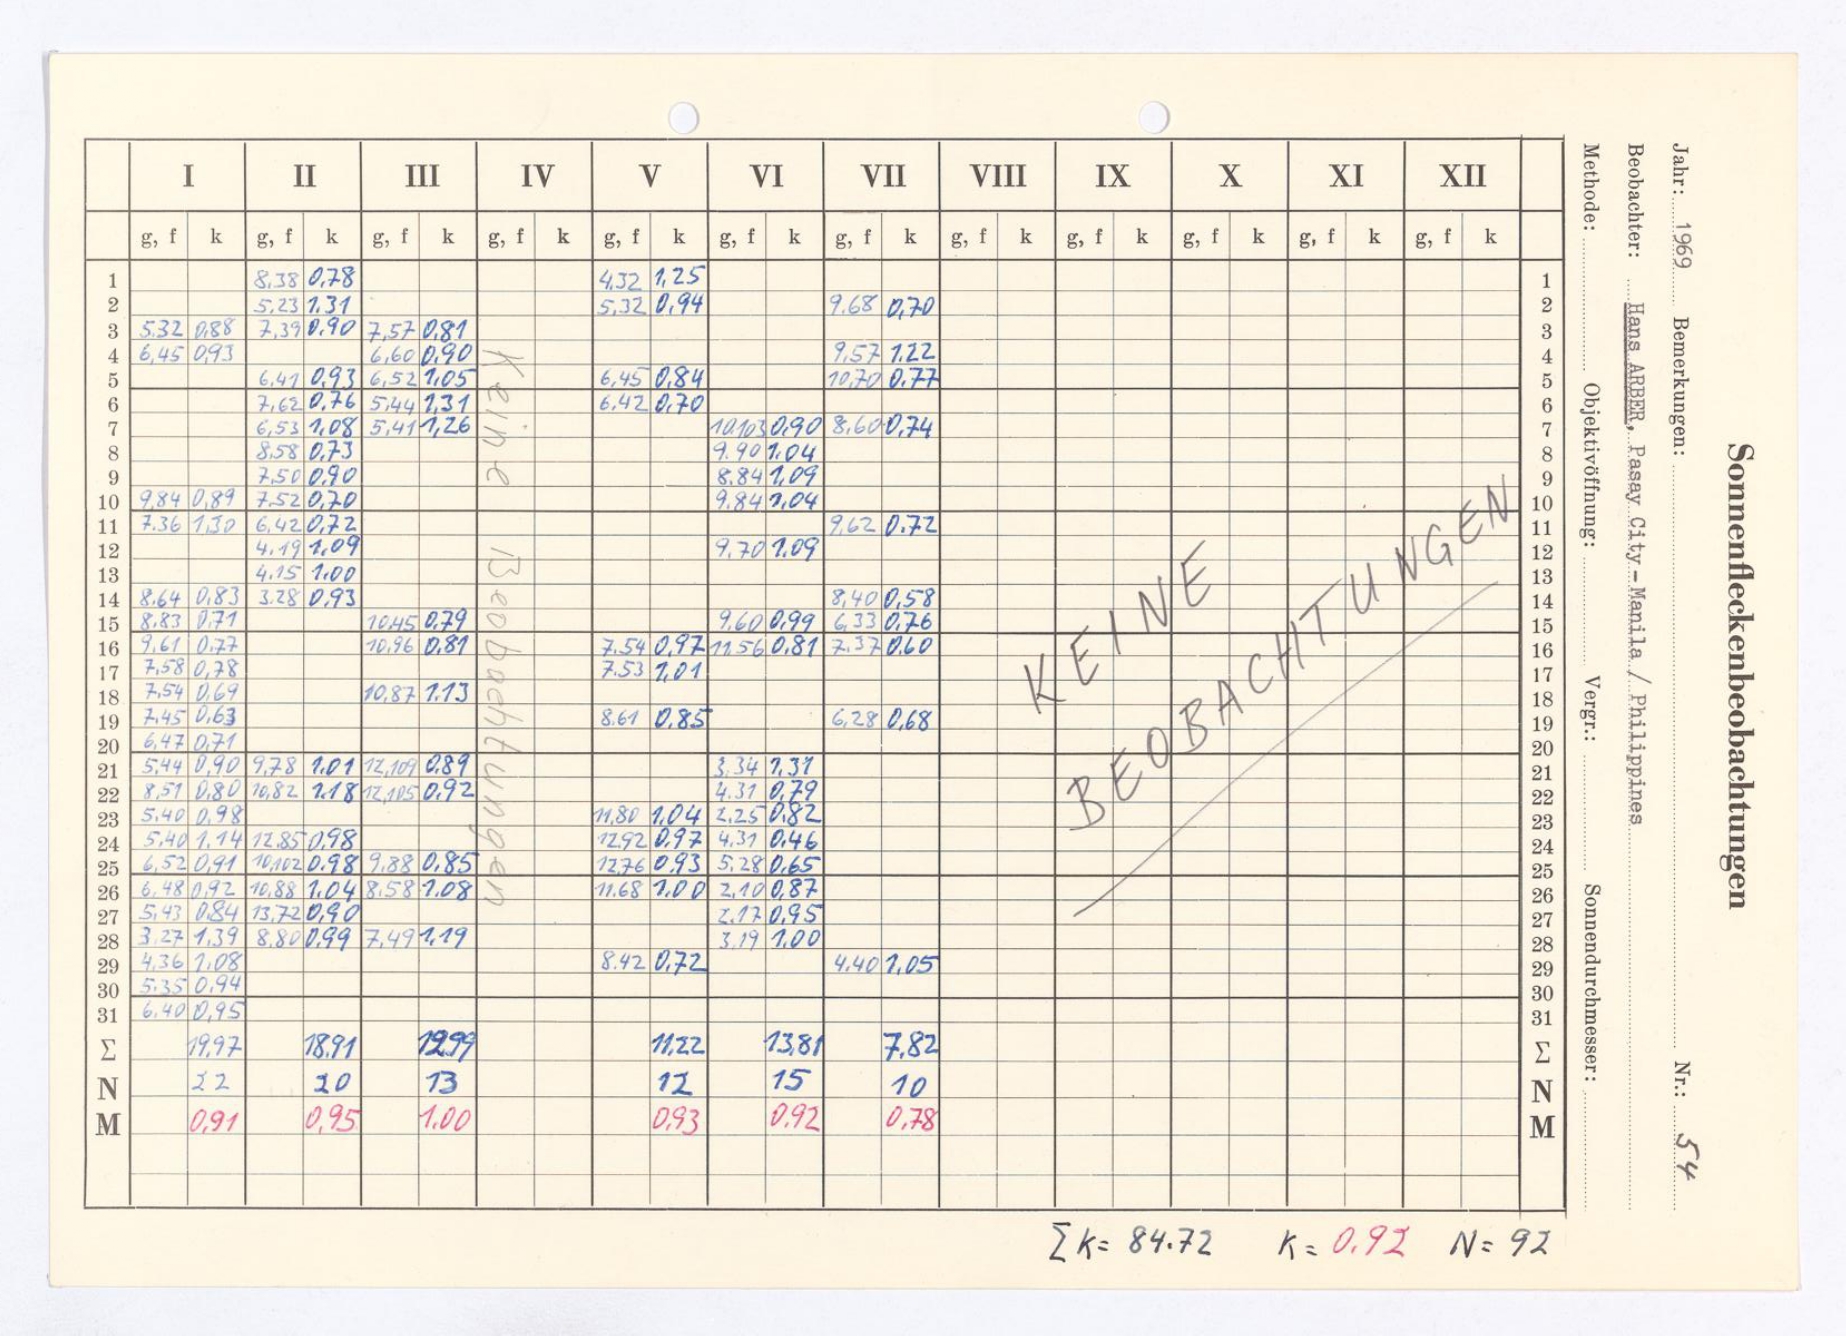 Sonnenfleckenbeobachtungen
Jahr: 1969 Bemerkungen: Nr.: 54
Beobachter: Hans ARBER, Pasay City-Manila / Philippines
Methode: Objektivöffnung: Vergr.: Sonnendurchmesser:
I II III IV V VI VII VIII IX X XI XII
g, f k g, f k g, f k g, f k g, f k g, f k g, f k g, f k g, f k g, f k g, f k g, f k
1 8.38 0,78 4.32 1,25 1
2 5.23 1.31 5.32 0,94 9.68 0,70 2
3 5.32 0,88 7,39 0,90 7,57 0,81 3
4 6,45 0,93 6,60 0,90 9,57 1.22 4
5 6,41 0,93 6,52 1,05 6,45 0,84 10,70 0.77 5
6 7,62 0,76 5,44 1,31 6,42 0,70 6
7 6,53 1,08 5,41 1,26 10.103 0,90 8,60 0,74 7
8 8.58 0,73 9.90 1.04 8
9 7,50 0,90 8.84 1,09 9
10 9,84 0,89 7.52 0,70 9.84 1,04 10
11 7.36 1,30 6,42 0,72 9,62 0.72 11
12 4.19 1,09 9,70 1.09 12
13 4.15 1.00 13
14 8.64 0,83 3.28 0,93 8,40 0,58 14
15 8.83 0,71 10,45 0,79 9,60 0,99 6,33 0,76 15
16 9,61 0,77 10,96 0,81 7.54 0,97 11.56 0,81 7.37 0,60 16
17 7,58 0,78 7.53 1,01 17
18 7,54 0,69 10,87 1.13 18
19 7,45 0,63 8.61 0,85 6,28 0,68 19
20 6,47 0,71 20
21 5,44 0,90 9,78 1.01 12,109 0,89 3,34 1,31 21
22 8,51 0,80 10,82 1.18 12,105 0,92 4.31 0,79 22
23 5.40 0,98 11,80 1,04 2,25 0,82 23
24 5,40 1,14 12.85 0,98 12.92 0,97 4.31 0,46 24
25 6,52 0,91 10,102 0,98 9,88 0,85 12.76 0,93 5,28 0,65 25
26 6,48 0,92 10,88 1.04 8.58 1.08 11.68 1.00 2,10 0,87 26
27 5,43 0,84 13,72 0,90 2.17 0,95 27
28 3.27 1,39 8.80 0,99 7,49 1,19 3,19 1.00 28
29 4.36 1,08 8.42 0,72 4.40 1,05 29
30 5.35 0,94 30
31 6.40 0,95 31
Σ 19,97 18,91 12,99 11,22 13,81 7,82 Σ
N 22 20 13 12 15 10 N
M 0,91 0,95 1.00 0,93 0,92 0,78 M
Keine Beobachtungen
KEINE
BEOBACHTUNGEN
Σ K= 84.72 K= 0.92 N= 92